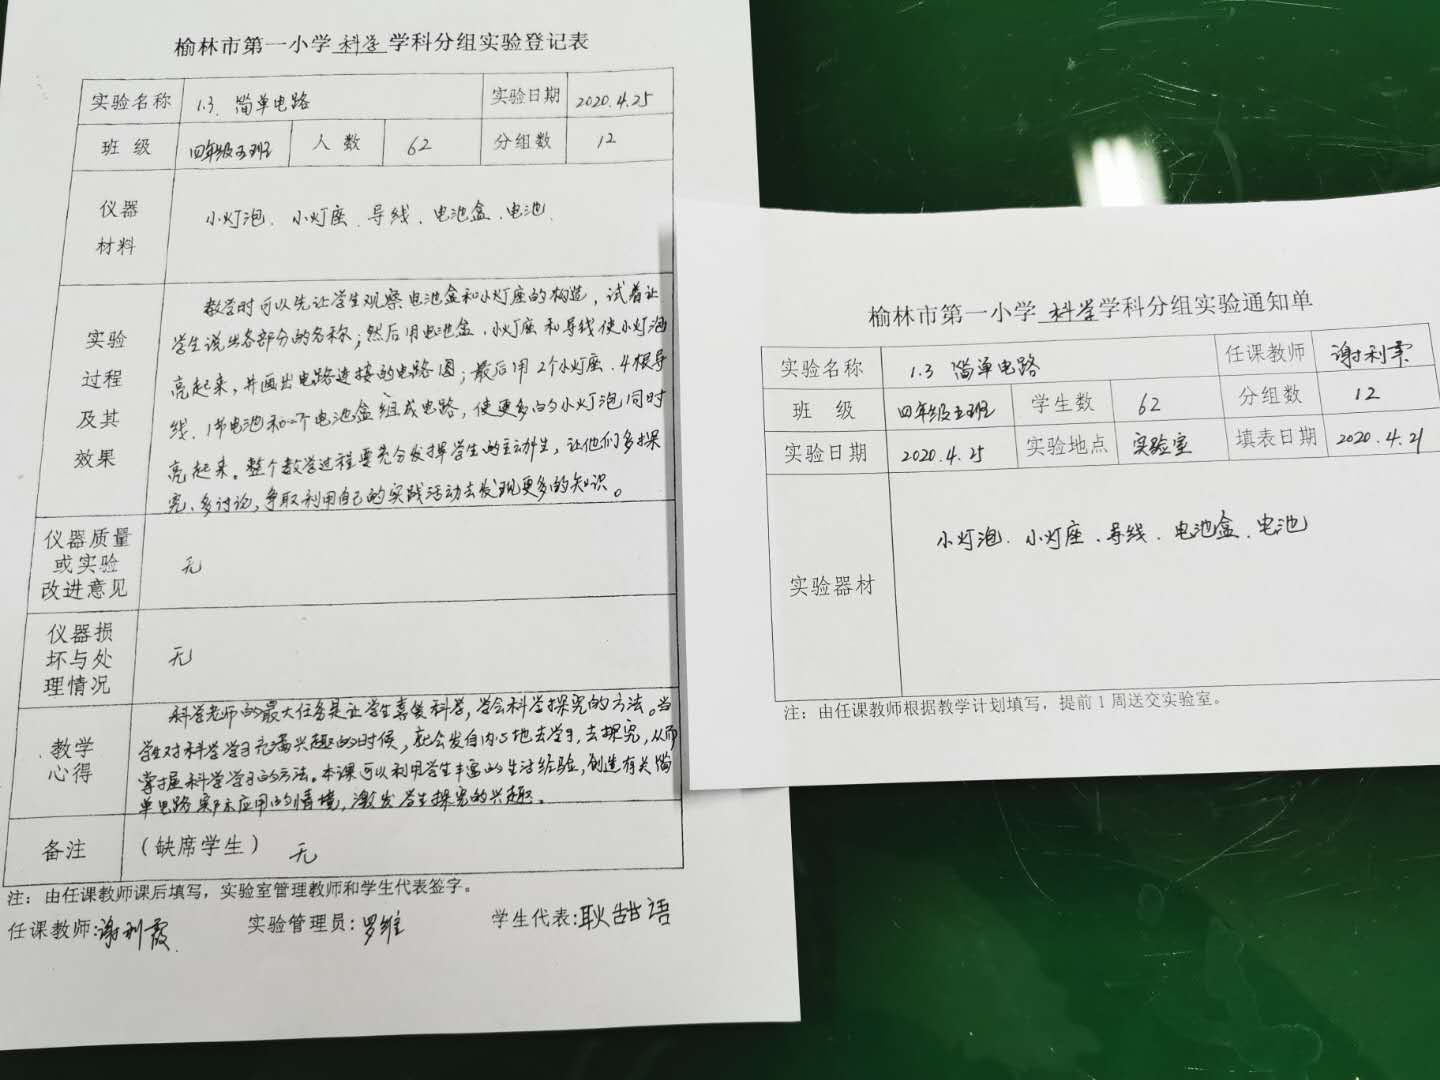 榆林市第一小学 科学 学科分组实验登记表
实验名称 1.3 简单电路 实验日期 2020.4.25
班 级 四年级五班 人 数 62 分组数 12
仪器
材料
小灯泡、小灯座、导线、电池盒、电池
实验
过程
及其
效果
教学时可以先让学生观察电池盒和小灯座的构造，试着让
学生说出各部分的名称；然后用电池盒、小灯座和导线使小灯泡
亮起来，并画出电路连接的电路图；最后用2个小灯座、4根导
线、1节电池和一个电池盒组成电路，使更多的小灯泡同时
亮起来。整个教学过程要充分发挥学生的主动性，让他们多探
究、多讨论，争取利用自己的实践活动去发现更多的知识。
仪器质量
或实验
改进意见
无
仪器损
坏与处
理情况
无
教学
心得
科学老师的最大任务是让学生喜爱科学，学会科学探究的方法。当
学生对科学学习充满兴趣的时候，就会发自内心地去学习，去探究，从而
掌握科学学习的方法。本课可以利用学生丰富的生活经验，创造有关简
单电路实际应用的情境，激发学生探究的兴趣。
备注 （缺席学生） 无
注：由任课教师课后填写，实验室管理教师和学生代表签字。
任课教师：谢利霞 实验管理员：罗维 学生代表：耿甜语
榆林市第一小学 科学 学科分组实验通知单
实验名称 1.3 简单电路 任课教师 谢利霞
班 级 四年级五班 学生数 62 分组数 12
实验日期 2020.4.25 实验地点 实验室 填表日期 2020.4.21
实验器材
小灯泡、小灯座、导线、电池盒、电池
注：由任课教师根据教学计划填写，提前1周送交实验室。